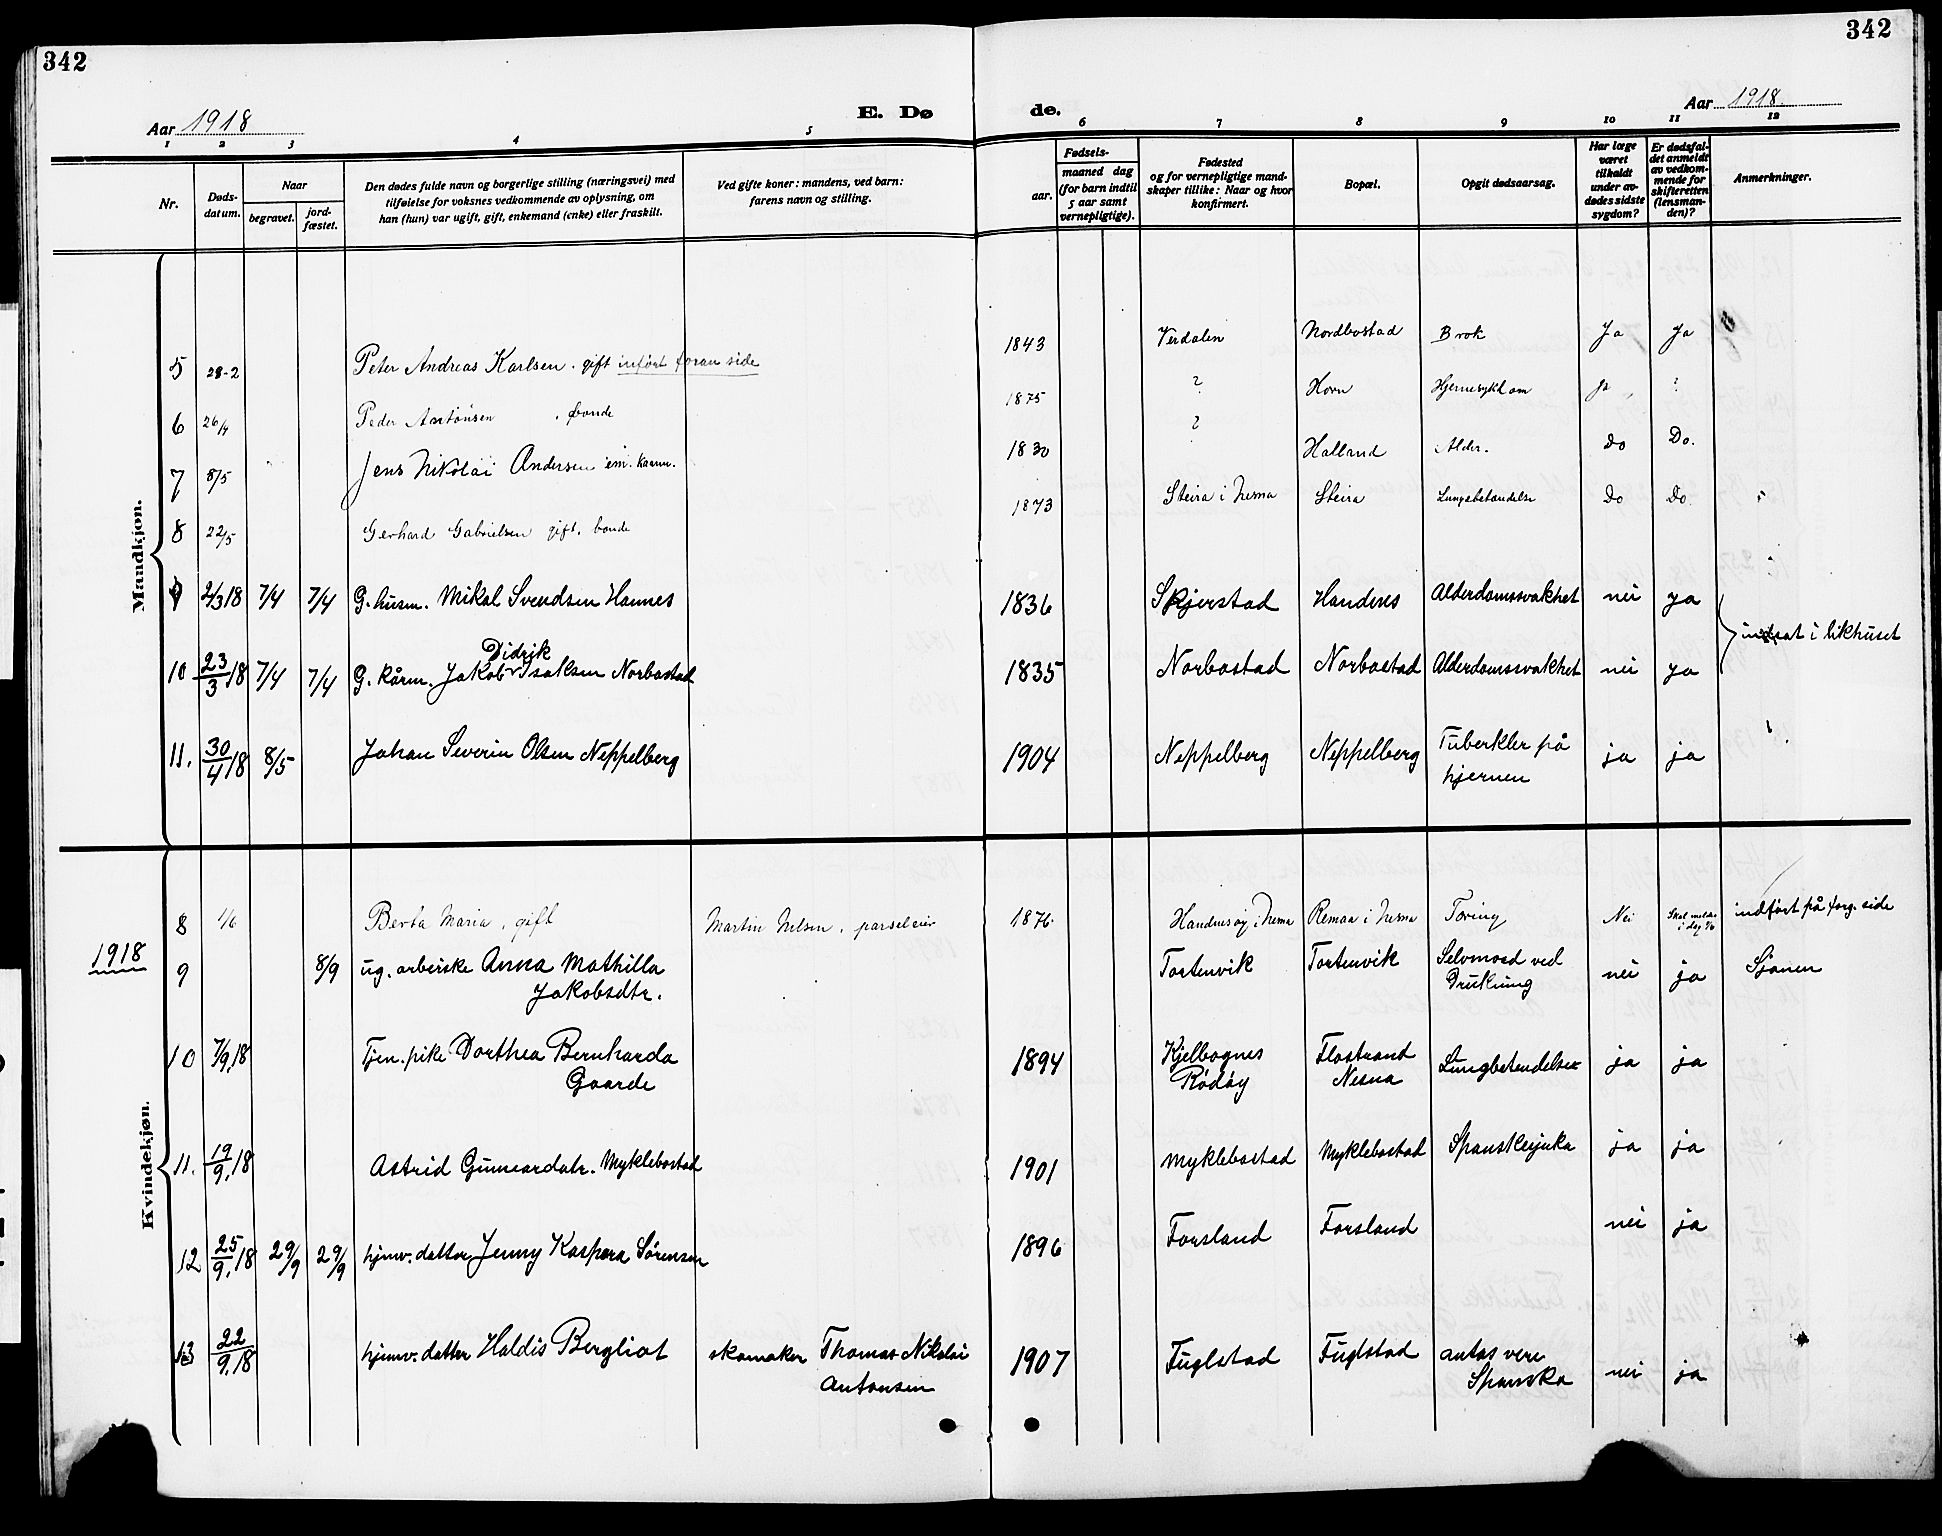 342
342
Aar 1918
E. Dø
de.
Aar 1918.
1 2 3 4 5 6 7 8 9 10 11 12
Nr.
Døds-
datum.
Naar
begravet.
jord-
fæstet.
Den dødes fulde navn og borgerlige stilling (næringsvei) med
tilføielse for voksnes vedkommende av oplysning, om
han (hun) var ugift, gift, enkemand (enke) eller fraskilt.
Ved gifte koner: mandens, ved barn:
farens navn og stilling.
Fødsels-
aar.
maaned dag
(for barn indtil
5 aar samt
vernepligtige).
Fødested
og for vernepligtige mand-
skaper tillike: Naar og hvor
konfirmert.
Bopæl.
Opgit dødsaarsag.
Har læge
været
tilkaldt
under av-
dødes sidste
sygdom?
Er dødsfal-
det anmeldt
av vedkom-
mende for
skifteretten
(lensman-
den)?
Anmerkninger.
Mandkjøn.
5 28-2 Peter Andreas Karlsen. gift infört foran side 1843 Verdalen Nordbostad Brok Ja Ja
6 26/4 Peder Antonsen . bonde 1875 ? Horn Hjernesykdom Ja ?
7 8/5 Jens Nikolai Andersen 1830 ? Halland Alder. Do Do.
8 22/5 Gerhard Gabrielsen gift. bonde 1873 Steira i Nesna Steira Lungebetændelse Do Do
9 2/3 18 7/4 7/4 G. husm. Mikal Svendsen Hannes 1836 Skjerstad Handnes Alderdomssvakhet nei ya
indsat i likhuset
10 23/3 18 7/4 7/4 G. kårm. Jakob Didrik Isaksen Norbostad 1835 Norbostad Norbostad Alderdomssvakhet nei ya
11. 30/4 18 8/5 Johan Severin Olsen Neppelberg 1904 Neppelberg Neppelberg Tuberkler på
hjernen ja ja
Kvindekjøn.
1918
8 1/6 Berta Maria, gift Martin Nilsen, parseleier 1876 Handnesöy i Nesna Remaa i Nesna Tæring Nei Skal meldes
i dag 3/6 indfört på forg. side
9 8/9 ug. arbeiske Anna Mathilla
Jakobsdtr. Tortenvik Tortenvik Selvmord ved
Drukning nei ja Sjonen
10 7/9.18 Tjen. pike Dorthea Bernharda
Gaarde 1894 Kjelbognes
Rödöy Flostrand
Nesna Lungbetendelse ja ja
11. 19/9.18 Astrid Gunnardatr. Myklebostad 1901 Myklebostad Myklebostad Spanskesjuka ja ja
12 25/9.18 29/9 29/9 hjemv. datter Jenny Kaspara Sörensen 1896 Forsland Forsland nei ja
13 22/9.18 hjemv. datter Haldis Bergliot skomaker Thomas Nikolai
Antonsen 1907 Fuglstad Fuglstad antas vere
Spanska nei ja